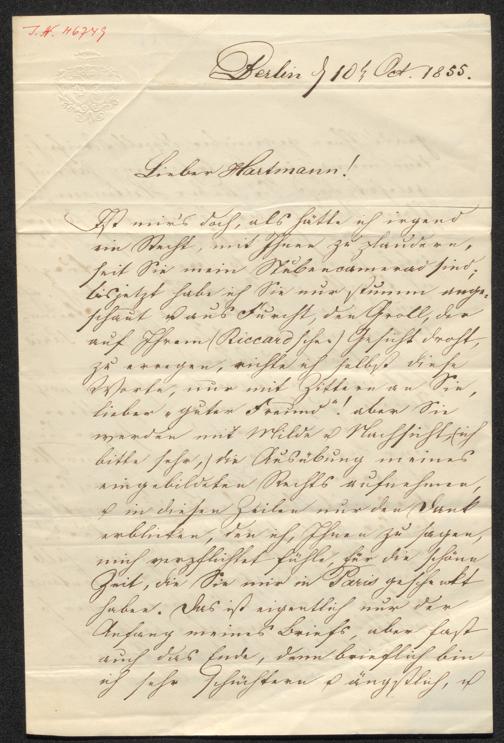 J.N. 46749
Berlin d 10t Oct. 1855.
Lieber Hartmann!
Ist mir's doch, als hätte ich irgend
ein Recht, mit Ihnen zu plaudern,
seit Sie mein Stubencamerad sind;
bis jetzt habe ich Sie nur stumm ange-
schaut u aus Furcht, den Groll, der
auf Ihrem (Riccard'schen) Gesicht droht,
zu erregen, richte ich selbst diese
Worte, nur mit Zittern an Sie,
lieber, guter Freund! aber Sie
werden mit Milde u Nachsicht, (ich
bitte sehr,) die Ausübung meines
eingebildeten Rechts aufnehmen,
u in diesen Zeilen nur den Dank
erblicken, den ich, Ihnen zu sagen,
mich verpflichtet fühle, für die schöne
Zeit, die Sie mir in Paris geschenkt
haben. Das ist eigentlich nur der
Anfang meines Briefs, aber fast
auch das Ende, denn brieflich bin
ich sehr schüchtern u ängstlich, u